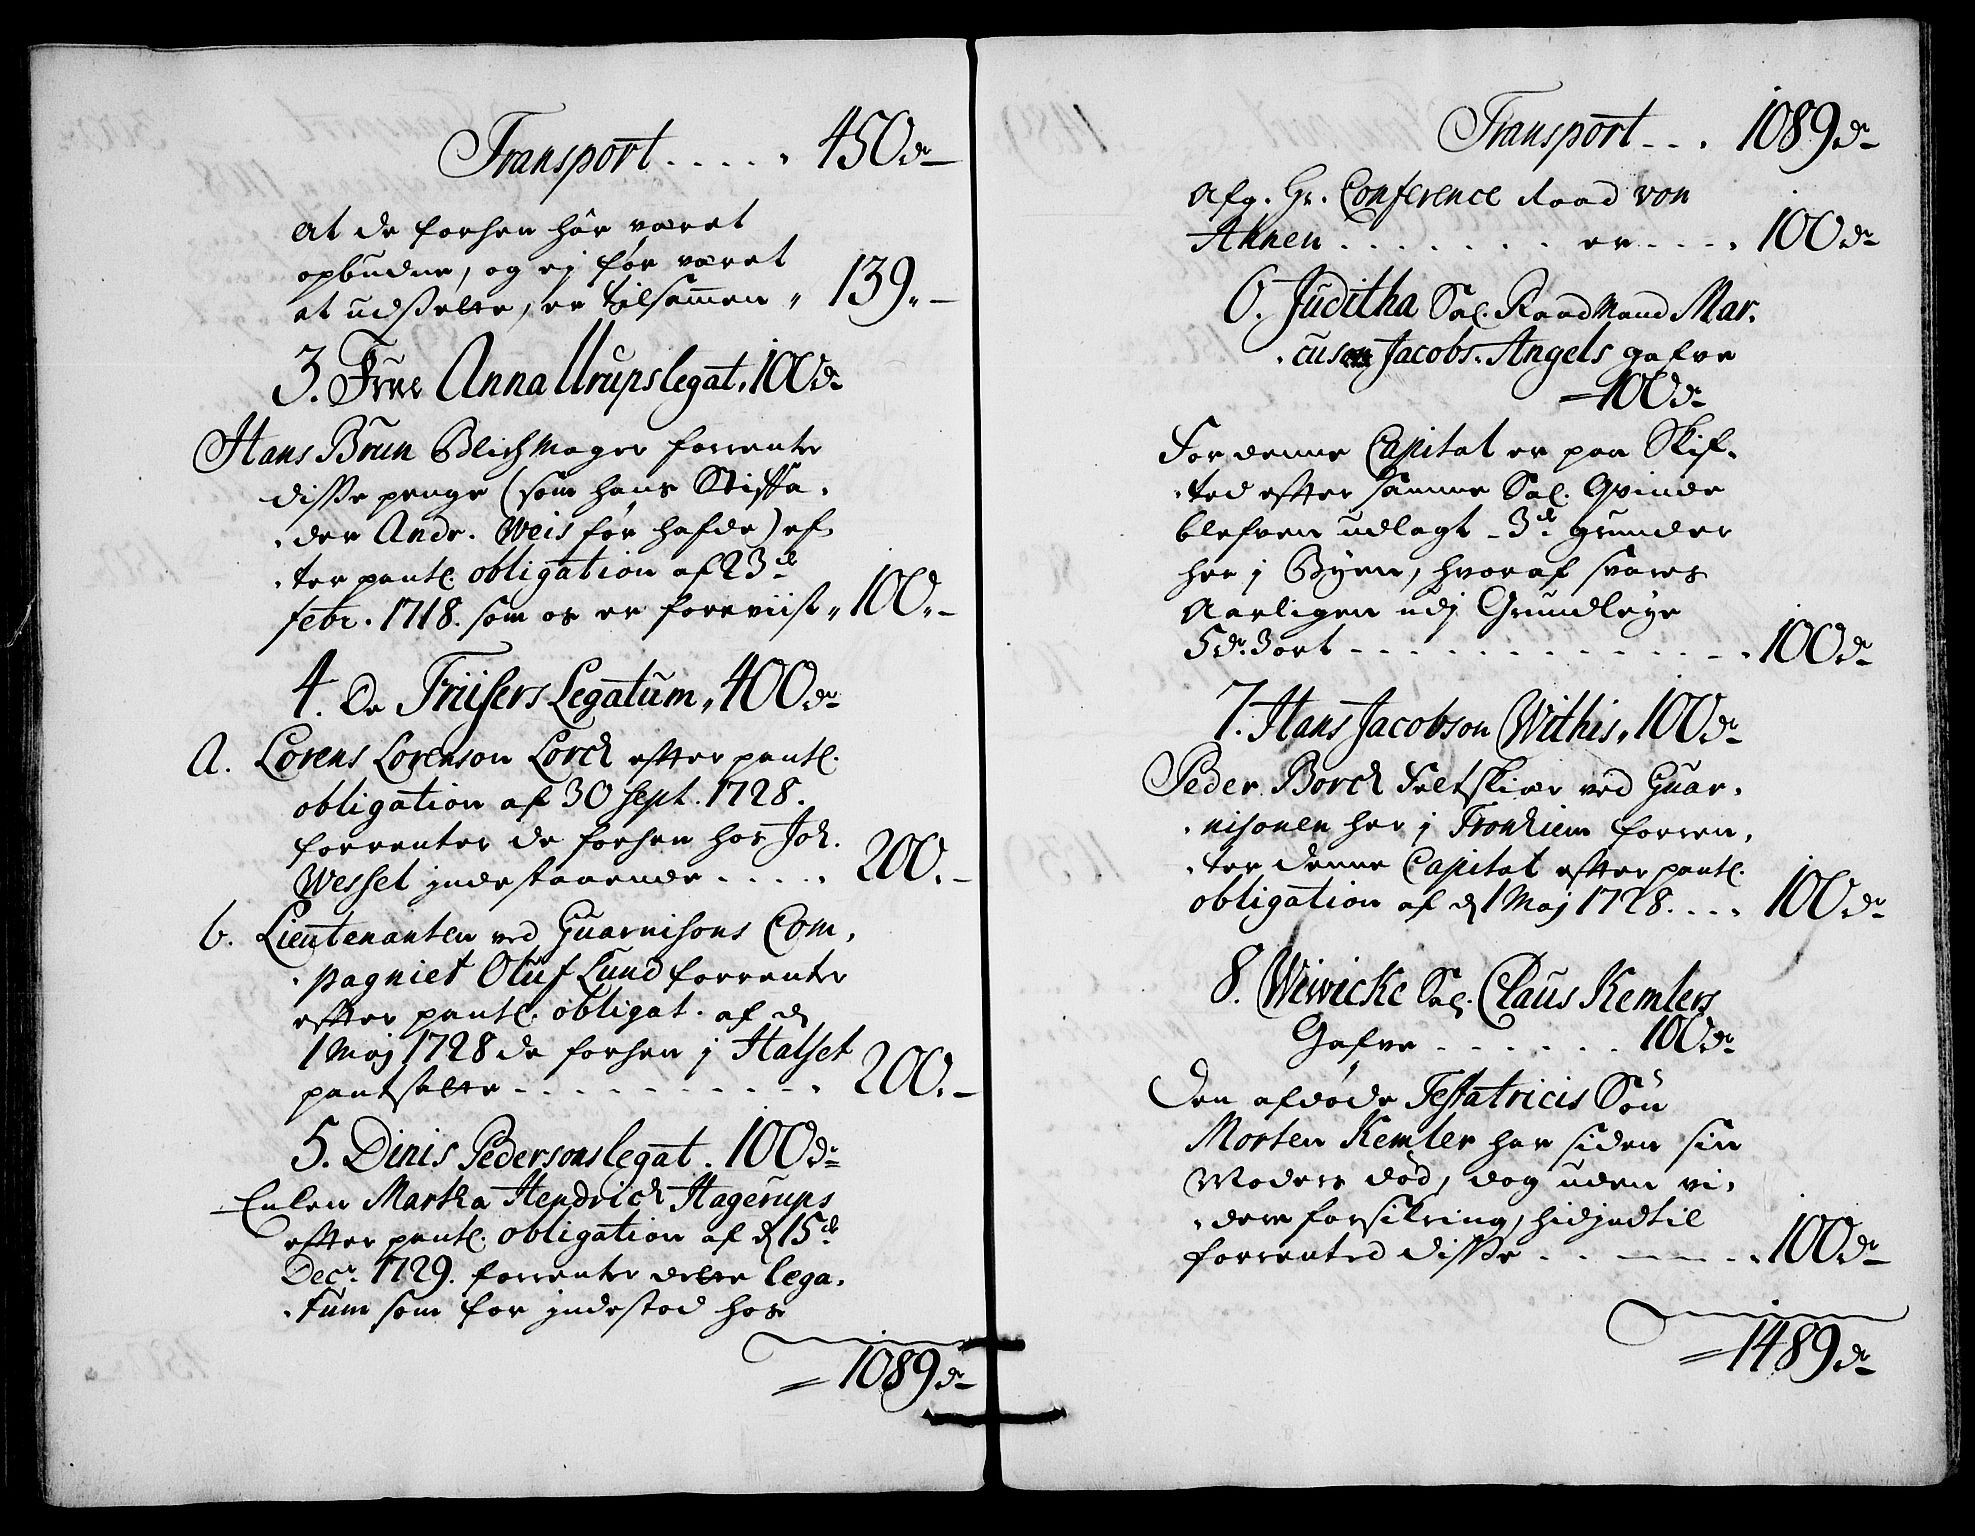 Transport . . . . . 450 dr
at de forhen hâr været
opbudne, og ej før været
at udsætte, er tilsammen " 139 " —
3. Frue Anna Urups legat, 100 dr
Hans Brun Blichmager forrenter
disse penge (som hans Stiffa-
der Andr. Weis før hafde) ef-
ter pantl. obligation af 23de
febr. 1718. som os er foreviist " 100 " —
4. De Friisers Legatum, 400 dr
A. Lorens Lorenson Lorch efter pantl.
obligation af 30 Sept. 1728.
forrenter de forhen hos Joh.
Wessel indestaaende . . . . . 200. —
b. Lieutenanten ved Guarnisons Com-
pagniet Oluf Lund forrenter
efter pantl. obligat. af d
1 Maj 1728 de forhen j Halset
pantsatte . . . . . . . . . 200. —
5. Dinis Pedersons legat. 100 dr
Enken Martha Hendrich Hagerups
efter pantl. obligation af d 15de
Decr. 1729. forrenter dette lega-
tum som før indestod hos
= 1089 dr
Transport . . . 1089 dr
Afg. Hr. Conference Raad von
Ahnen . . . . . . . er . . . . 100 dr
6. Juditha Sal. Raadmand Mar-
cus Jacobs. Angels gafve
— 100 dr
For denne Capital er paa Skif-
ted efter samme Sal. Qvinde
blefven udlagt - 3de grunder
her j Byen, hvoraf svares
Aarligen udj Grundleye
5 dr. 3 ort . . . . . . . . . . . 100 dr
7. Hans Jacobson Withis, 100 dr
Peder Borch Feltskiær ved Guar-
nisonen her j Tronhiem forren-
ter denne Capital efter pantl.
obligation af d 1 Maj 1728. . . . 100 dr
8. Wiwicke Sal. Claus Kemlers
Gafve . . . . . . . 100 dr
Den afdøde Testatricis Søn
Morten Kemler har siden sin
Moders død, dog uden vi-
dere forsikring, hidindtil
forrented disse . . — — — . . 100 dr
= 1489 dr